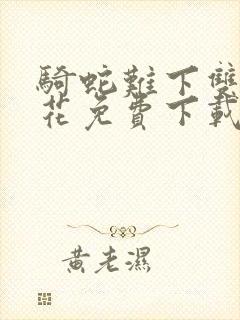 騎蛇難下雙
花免費下載
黃老濕